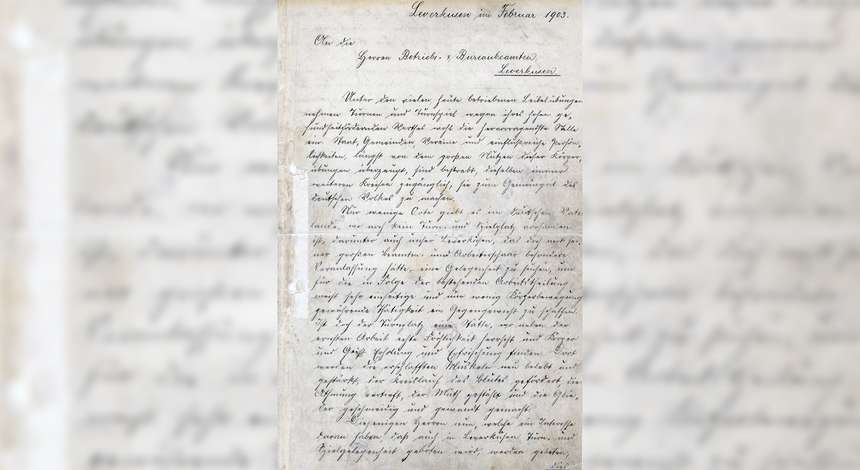 Leverkusen im Februar 1903.
An die
Herren Betriebs- & Bureaubeamten,
Leverkusen
Unter den vielen heute betriebenen Leibesübungen
nehmen Turnen und Turnspiel wegen ihres hohen ge-
sundheitfördernden Werthes wohl die hervorragendste Stelle
ein. Staat, Gemeinden, Vereine und einflußreiche Persön-
lichkeiten, längst von dem großen Nutzen dieser Körper-
übungen überzeugt, sind bestrebt, dieselben immer
weiteren Kreisen zugänglich, sie zum Gemeingut des
deutschen Volkes zu machen.
Nur wenige Orte giebt es im deutschen Vater-
lande, wo noch kein Turn- und Spielplatz vorhanden
ist, darunter auch unser Leverkusen, das doch mit sei-
ner großen Beamten- und Arbeiterschaar besondere
Veranlassung hätte, eine Gelegenheit zu suchen, um
für die in Folge der bestehenden Arbeitstheilung
meist sehr einseitige und nur wenig Körperbewegung
gewährende Thätigkeit ein Gegengewicht zu schaffen.
Ist doch der Turnplatz eine Stätte, wo neben der
ernsten Arbeit echte Fröhlichkeit herrscht und Körper
und Geist Erholung und Erfrischung finden. Dort
werden die erschlafften Muskeln neu belebt und
gestärkt, der Kreislauf des Blutes gefördert, die
Athmung vertieft, der Muth gestählt und die Glie-
der geschmeidig und gewandt gemacht.
Diejenigen Herren nun, welche ein Interesse
daran haben, daß auch in Leverkusen Turn- und
Spielgelegenheit geboten wird, werden gebeten,